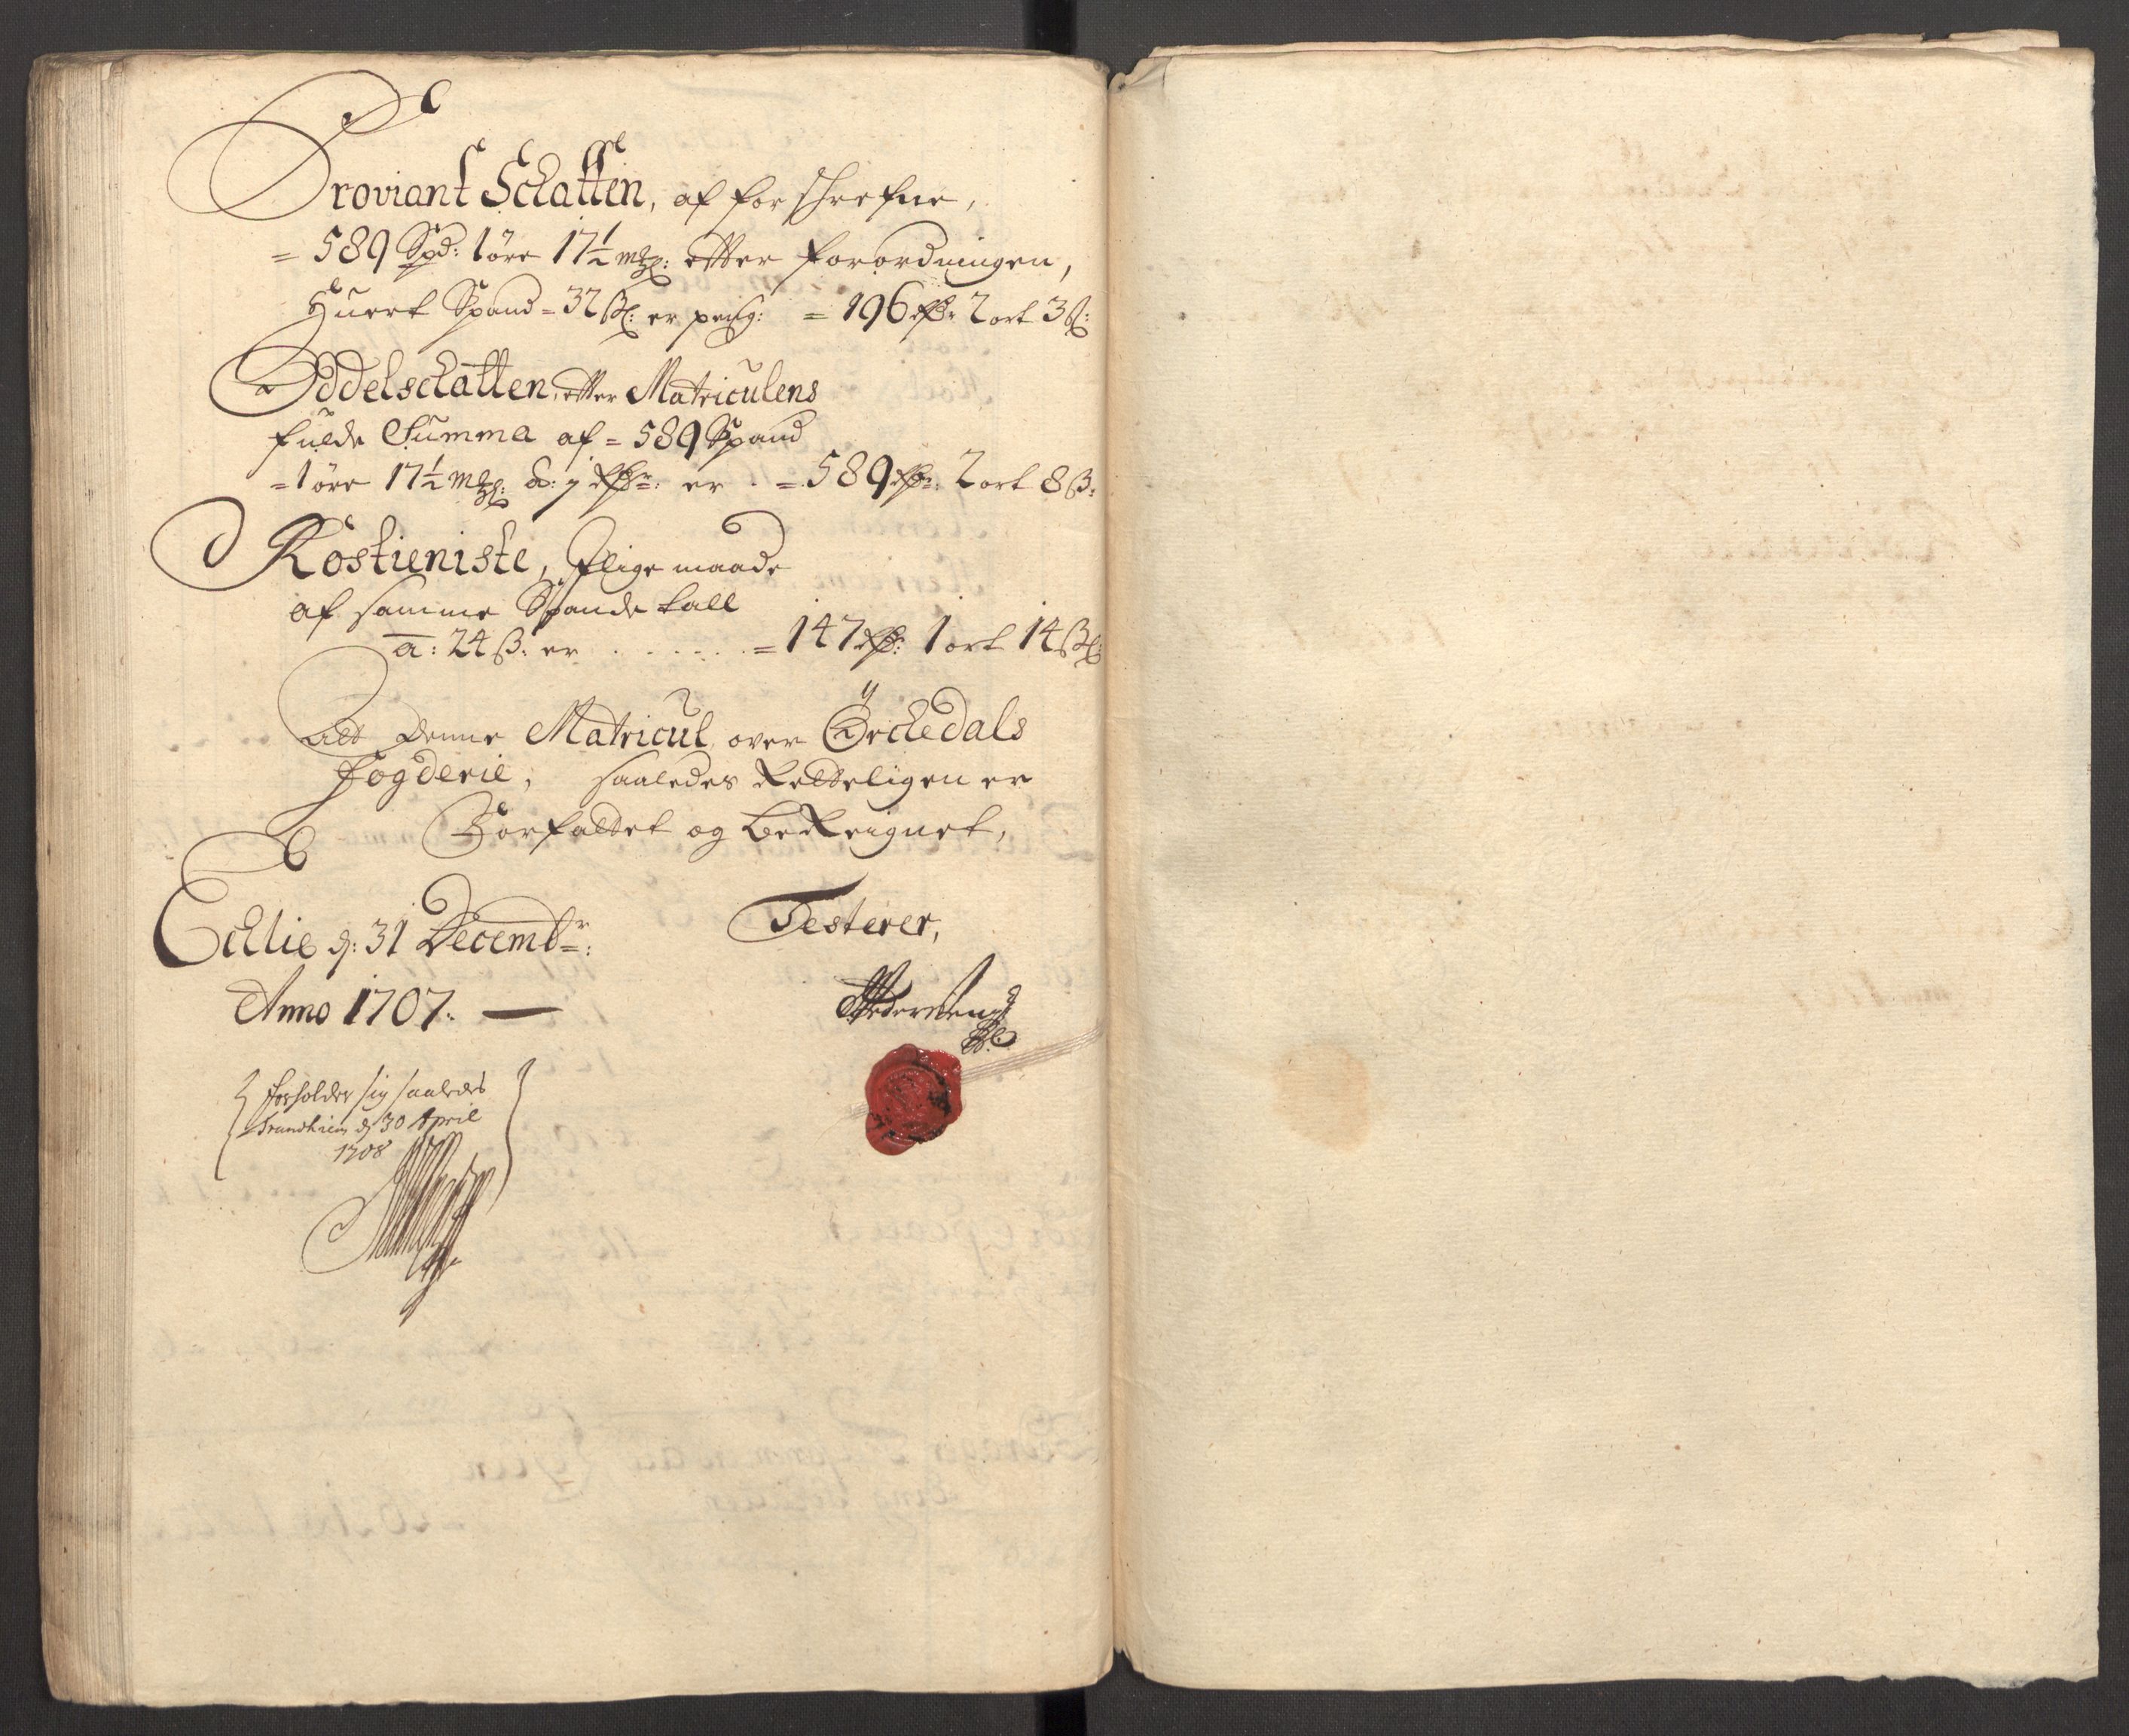 Proviant Schatten, af forskrefne,
= 589 Spd: 1 öre 17½ mkl: effter forordningen,
Huert Spand = 32 sk: er peng: = 196 Rdr 2 ort 3 s:
Oddelschatten, effter Matriculens
fulde Summa af = 589 Spand
= 1 öre 17½ mkl: à: 1 Rdr: er . = 589 Rdr: 2 ort 8 s:
Rostieniste, Ilige maade
af samme Spande tall
a: 24 s: er . . . . . . = 147 Rdr: 1 ort 14 s:
Att denne Matricul over Örchedals
fogderie, saaledes Retteligen er
Forfattet og beReignet,
Echlie d: 31 Decembr: Testerer,
Anno 1707. —
forholder sig saaledes
Trundhiem d 30 April
1708